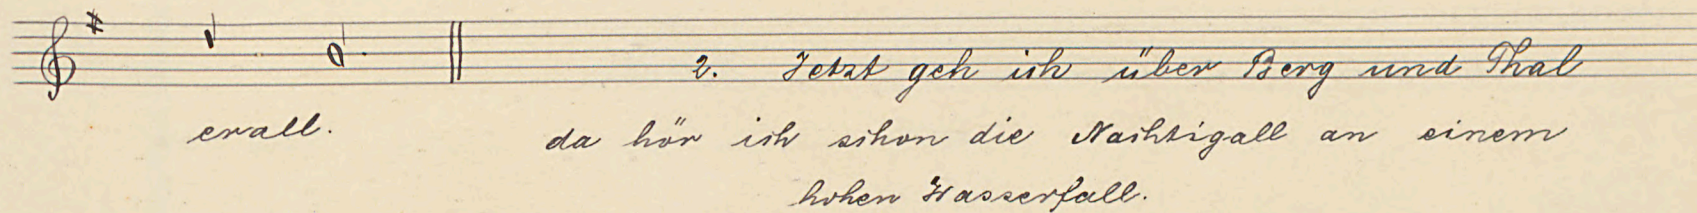 2. Jetzt geh ich über Berg und Thal
erall.
da hör ich schon die Nachtigall an einem
hohen Wasserfall.